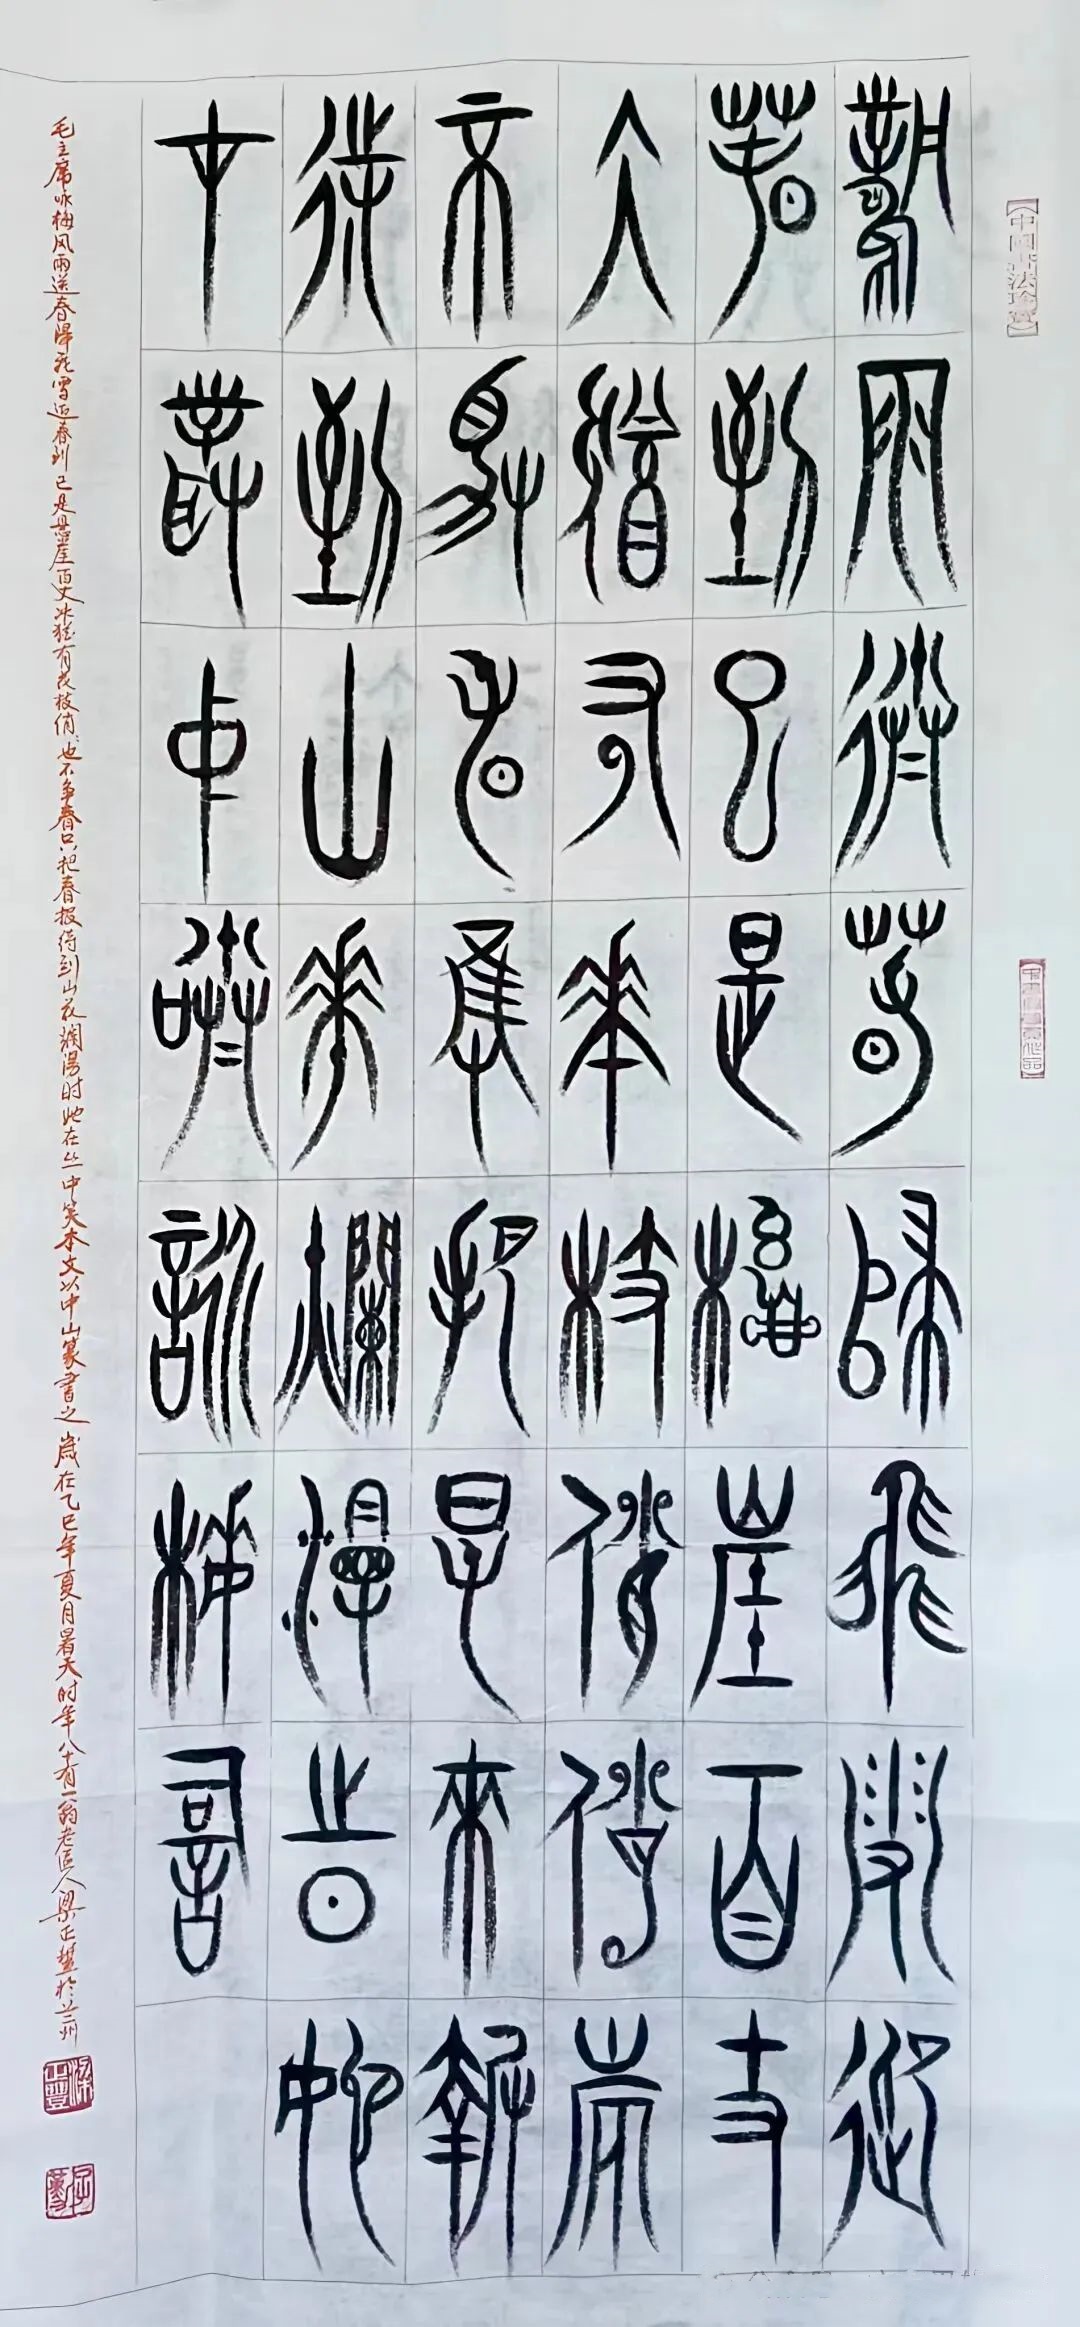 風雨送春歸飛雪迎
春到已是懸崖百丈
冰猶有華枝俏俏也
不爭春隻把春來報
待到山花爛漫時她
在叢中笑詠梅詞
毛主席咏梅风雨送春歸飛雪迎春到已是悬崖百丈冰犹有花枝俏也不争春只把春报待到山花烂漫时她在丛中笑本文以中山篆書之歲在乙巳年夏月暑天时年八十有一翁老區人梁正豐於兰州
【中國书法珍寶】